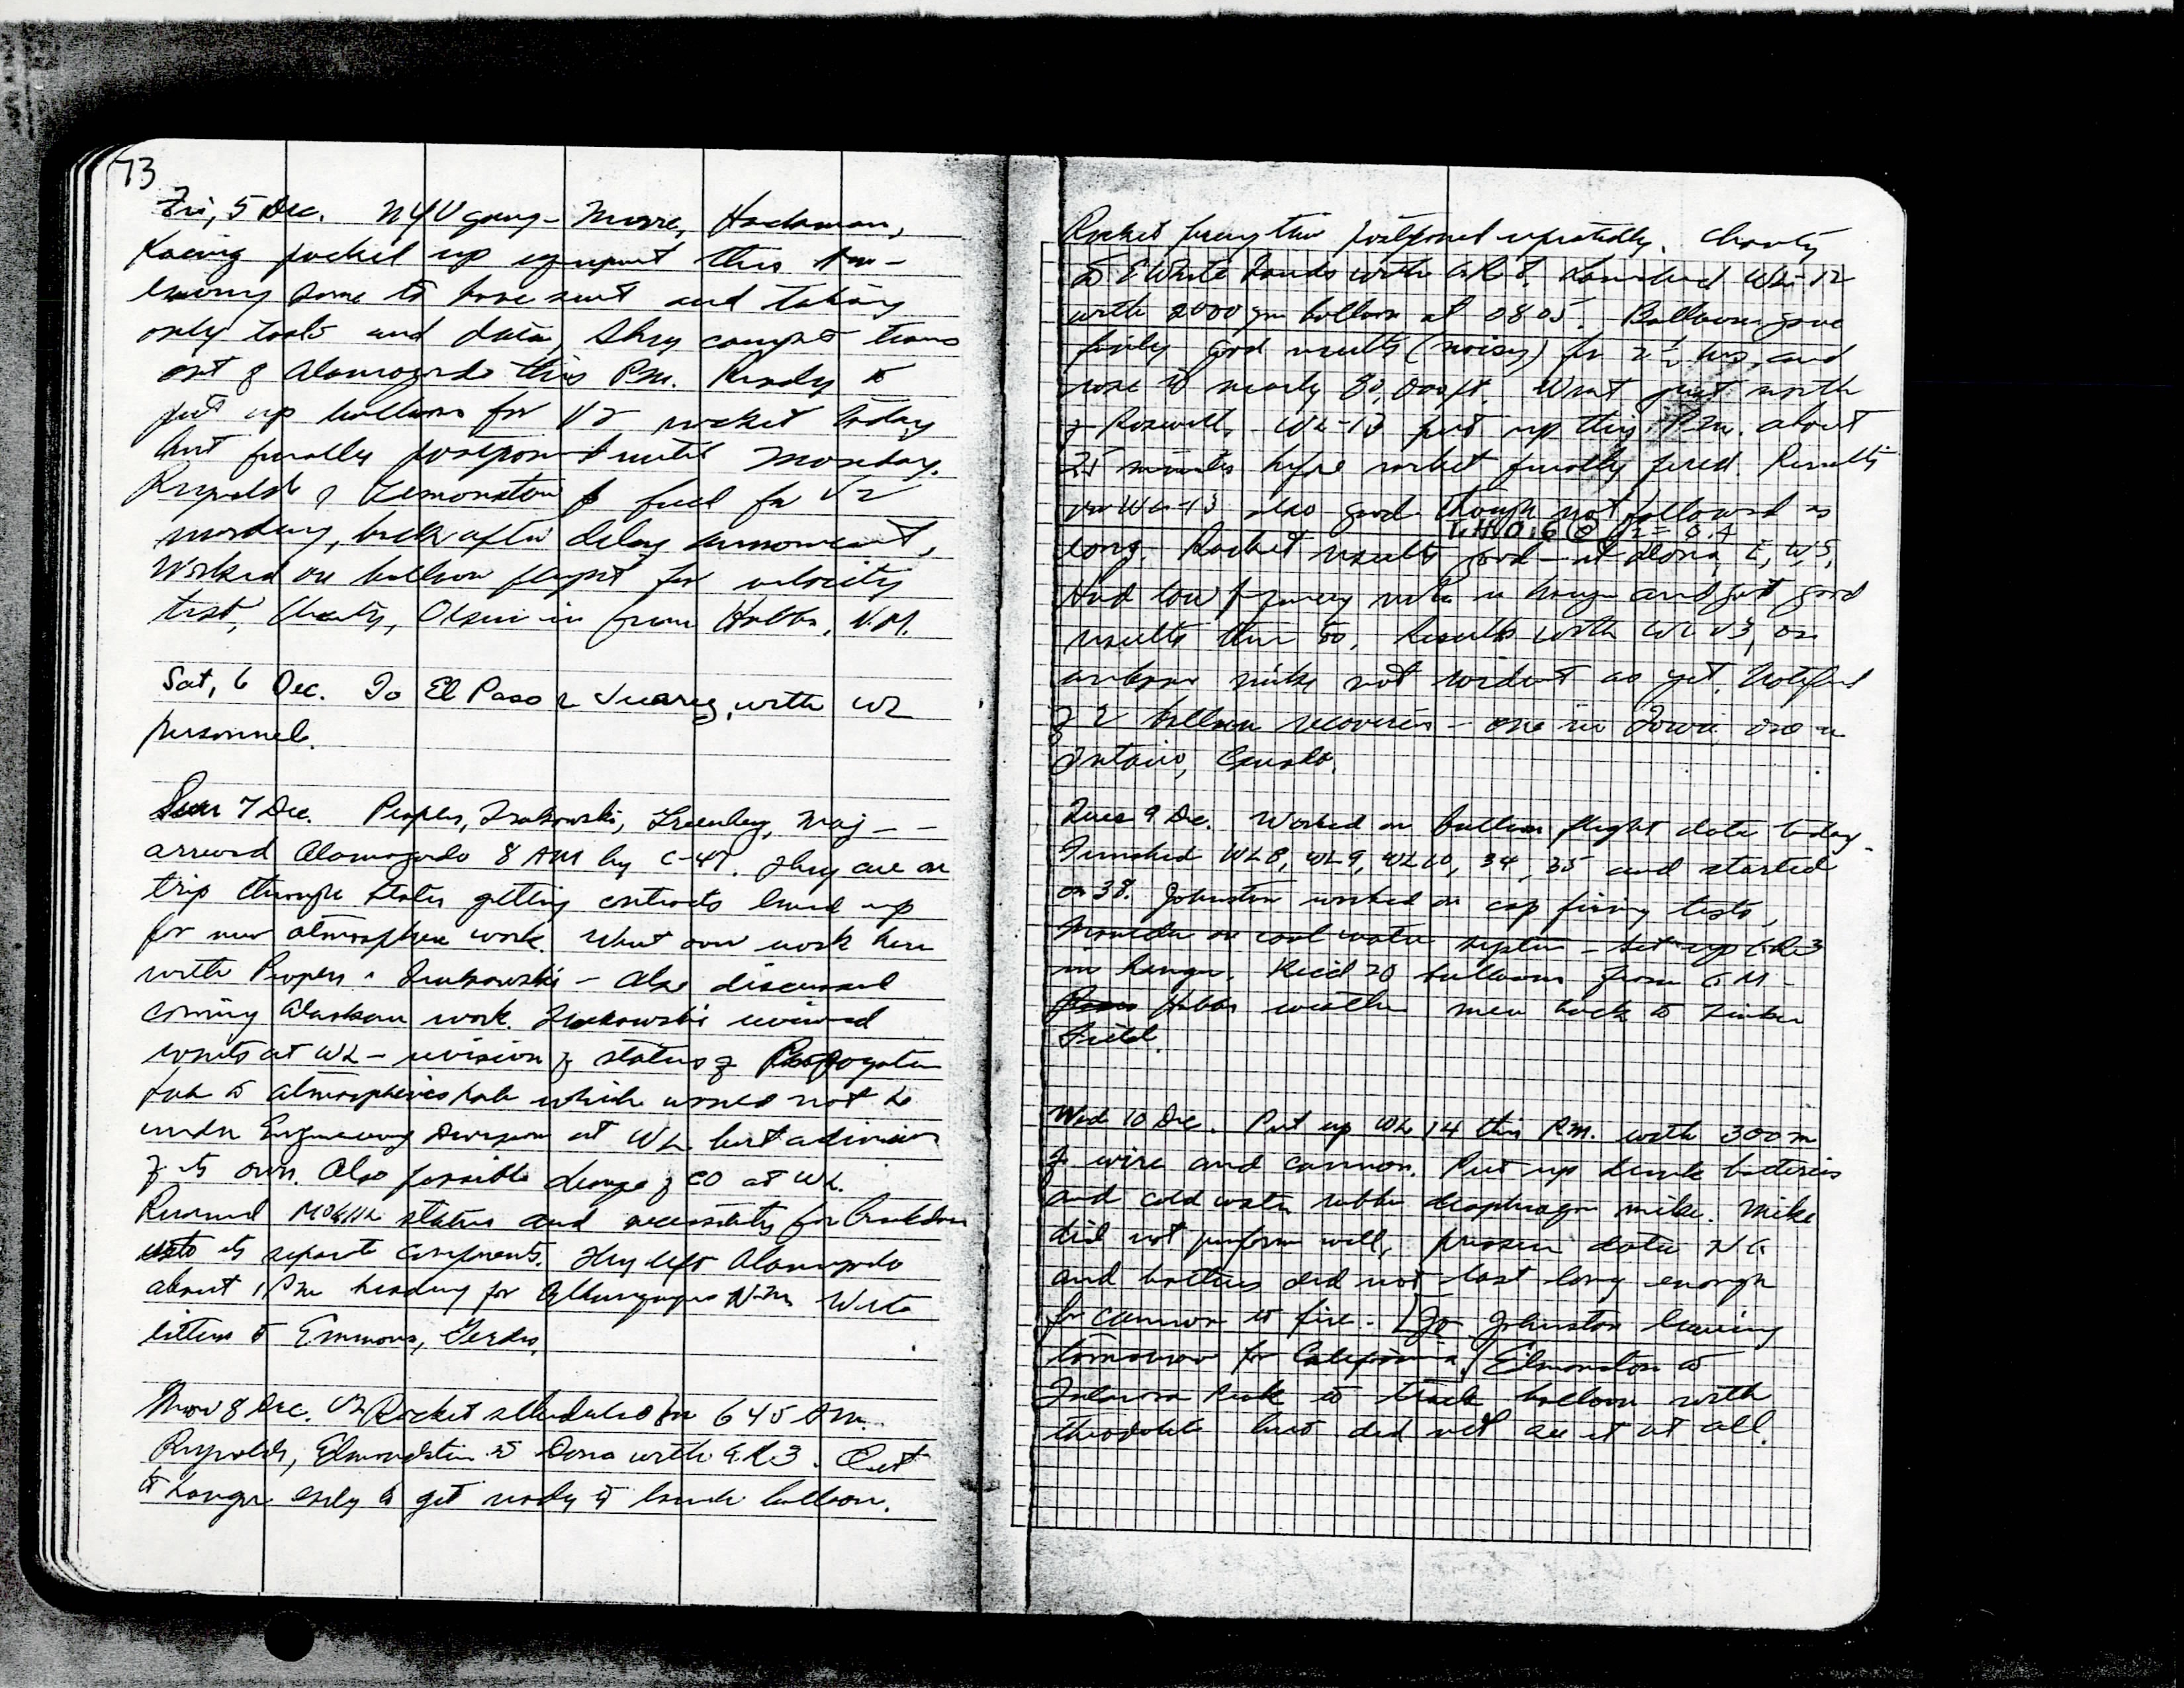 73
Fri, 5 Dec. NYU gang - Moore, Hackman,
packed up equipment this AM -
leaving some to have sent and taking
only tools and data, They caught train
out of Alamogordo this P.M. Ready to
put up balloons for V2 rocket today
but finally postponed until Monday.
Reynolds & Edmonston to fuel for V2
, back after delay announcement,
Worked on balloon flight for velocity
test, Chanty, Olsen in from Hobbs, N.M.
Sat, 6 Dec. To El Paso & Juarez, with WL
personnel.
Sun 7 Dec. Peoples, Trakowski, Greenberg, Maj - -
arrived Alamogordo 8 AM by C-47. They are on
trip through states getting contracts lined up
for new atmosphere work. Went over work here
with Peoples & Trakowski - Also discussed
coming Alaskan work. Trakowski reviewed
events at WL - revision of status of Propogation
Lab to atmospherics lab which would not be
under Engineering Division at WL but a division
of its own. Also possible change of CO at WL.
Reviewed MOGUL status and necessity for breakdown
into its separate components. They left Alamogordo
about 1 PM heading for Albuquerque N.M. Wrote
letters to Emmons, Gerdes.
Mon 8 Dec. V2 Rocket scheduled for 645 AM.
Reynolds, Edmondston to Dona with GR3. Out
to hangar early to get ready to launch balloon.
Rocket firing time postponed repeatedly. Chanty
to E White Sands with GR8. Launched WL-12
with 2000 gm balloon at 0805. Balloon gave
fairly good results (noisy) for 2 1/2 hrs, and
rose to nearly 80,000 ft. Went just north
of Roswell. WL-13 put up this P.M. about
25 minutes before rocket finally fired. Results
on WL-13 also good though not followed as
long. Rocket results good - at Dona, E, W, S,
Had low frequency mike in hangar and got good
results there too. Results with WL 13, on
mike not evident as yet. Notified
of 2 balloon recoveries - one in Iowa, one in
Ontario, Canada.
Tues 9 Dec. Worked on balloon flight data today -
Finished WL8, WL9, WL10, 34, 35 and started
on 38. Johnston worked on cap firing tests,
on cold water system - set up GR3
in hangar. Rec'd 20 balloons from G.M. -
Hobbs weather men back to Tinker
Field.
Wed 10 Dec. Put up WL 14 this P.M. with 300 m
of wire and cannon. Put up dunk batteries
and cold water rubber diaphragm mike. Mike
did not perform well, pressure data N.G.
and batteries did not last long enough
for cannon to fire. - Johnston leaving
tomorrow for California. Edmonston to
Tularosa Peak to track balloon with
theodolite but did not see it at all.